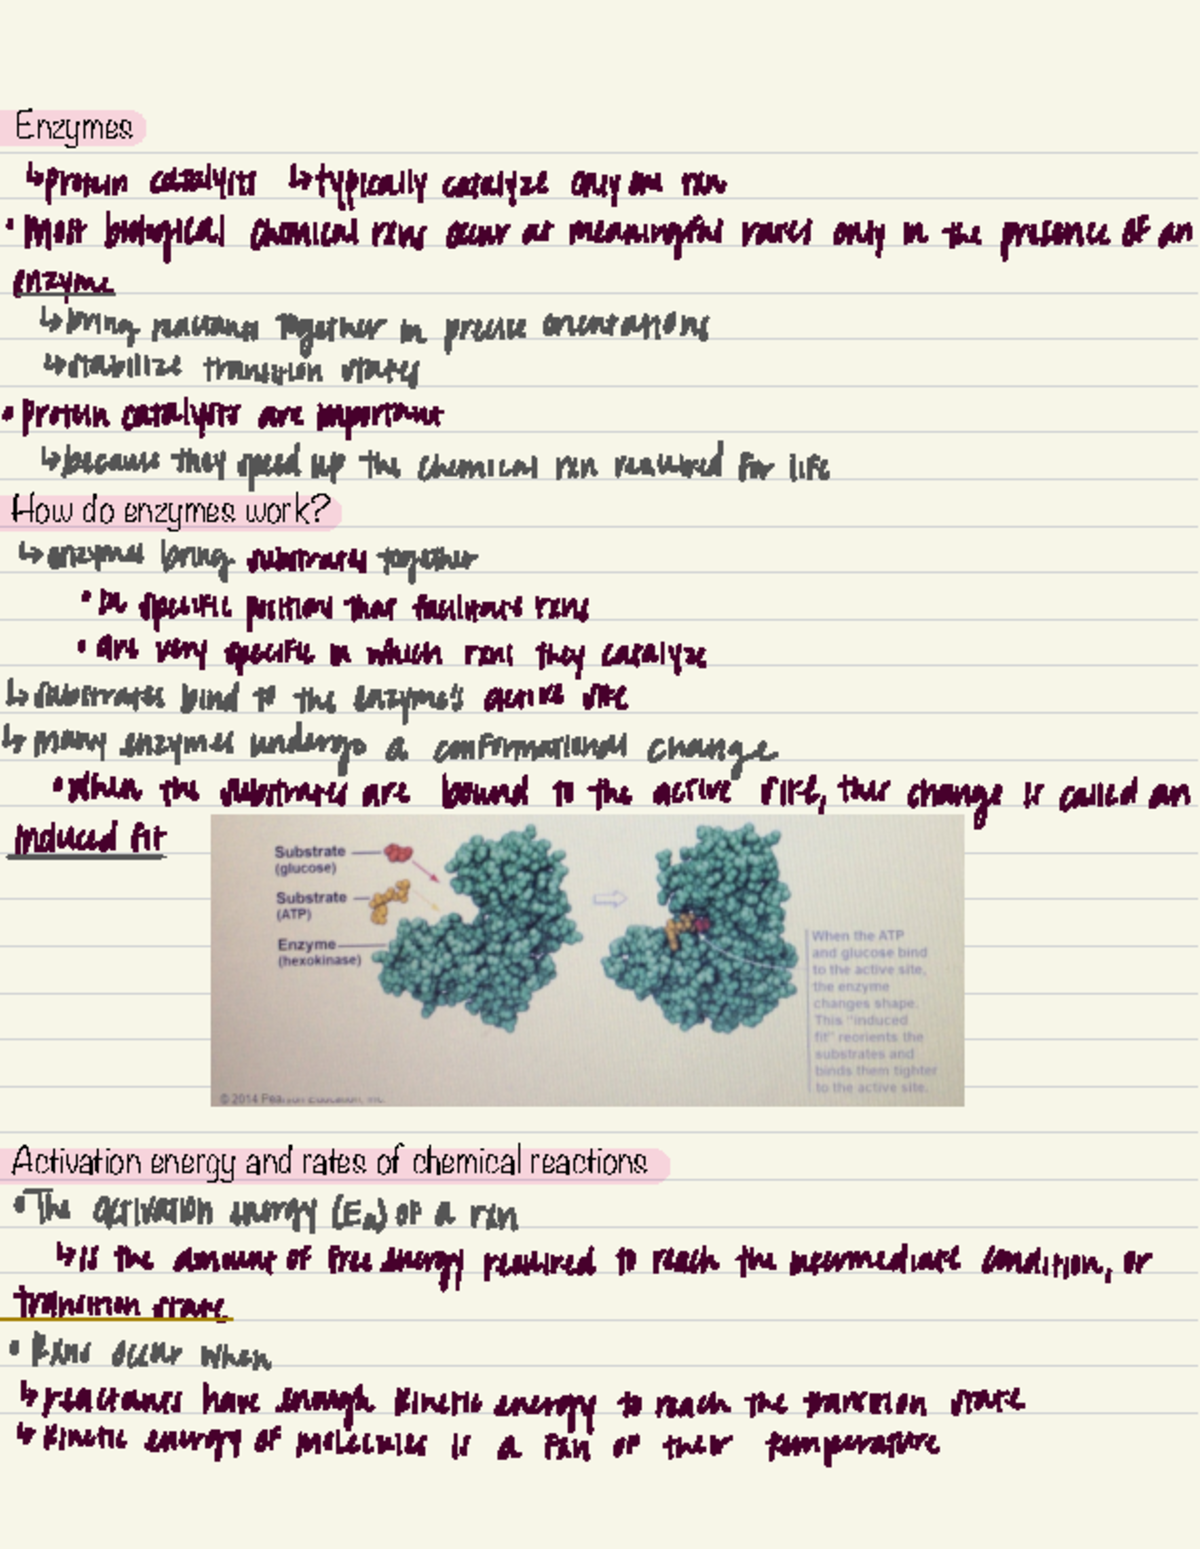 Enzymes
↳protein catalysts ↳typically catalyze only one rxn
• Most biological chemical rxns occur at meaningful rates only in the presence of an
enzyme
↳bring reactants together in precise orientations
↳stabilize transition states
• Protein catalysts are important
↳because they speed up the chemical rxn required for life
How do enzymes work?
↳enzymes bring substrates together
• In specific position that facilitate rxns
• are very specific in which rxns they catalyze
↳substrates bind to the enzyme's active site
↳ many enzymes undergo a conformational change
• when the substrates are bound to the active site, this change is called an
induced fit
Substrate
(glucose)
Substrate
(ATP)
Enzyme
(hexokinase)
When the ATP
and glucose bind
to the active site,
the enzyme
changes shape.
This "induced
fit" reorients the
substrates and
binds them tighter
to the active site.
© 2014 Pearson Education, Inc.
Activation energy and rates of chemical reactions
• The activation energy (Ea) of a rxn
↳is the amount of free energy required to reach the intermediate condition, or
transition state
• Rxns occur when
↳reactants have enough kinetic energy to reach the transition state
↳kinetic energy of molecules is a fxn of their temperature